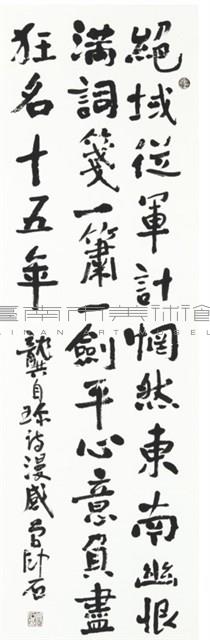 絕域從軍計惘然東南幽恨
滿詞箋一簫一劍平心意負盡
狂名十五年
龔自珍詩漫感 曾卧石
臺南市美術館